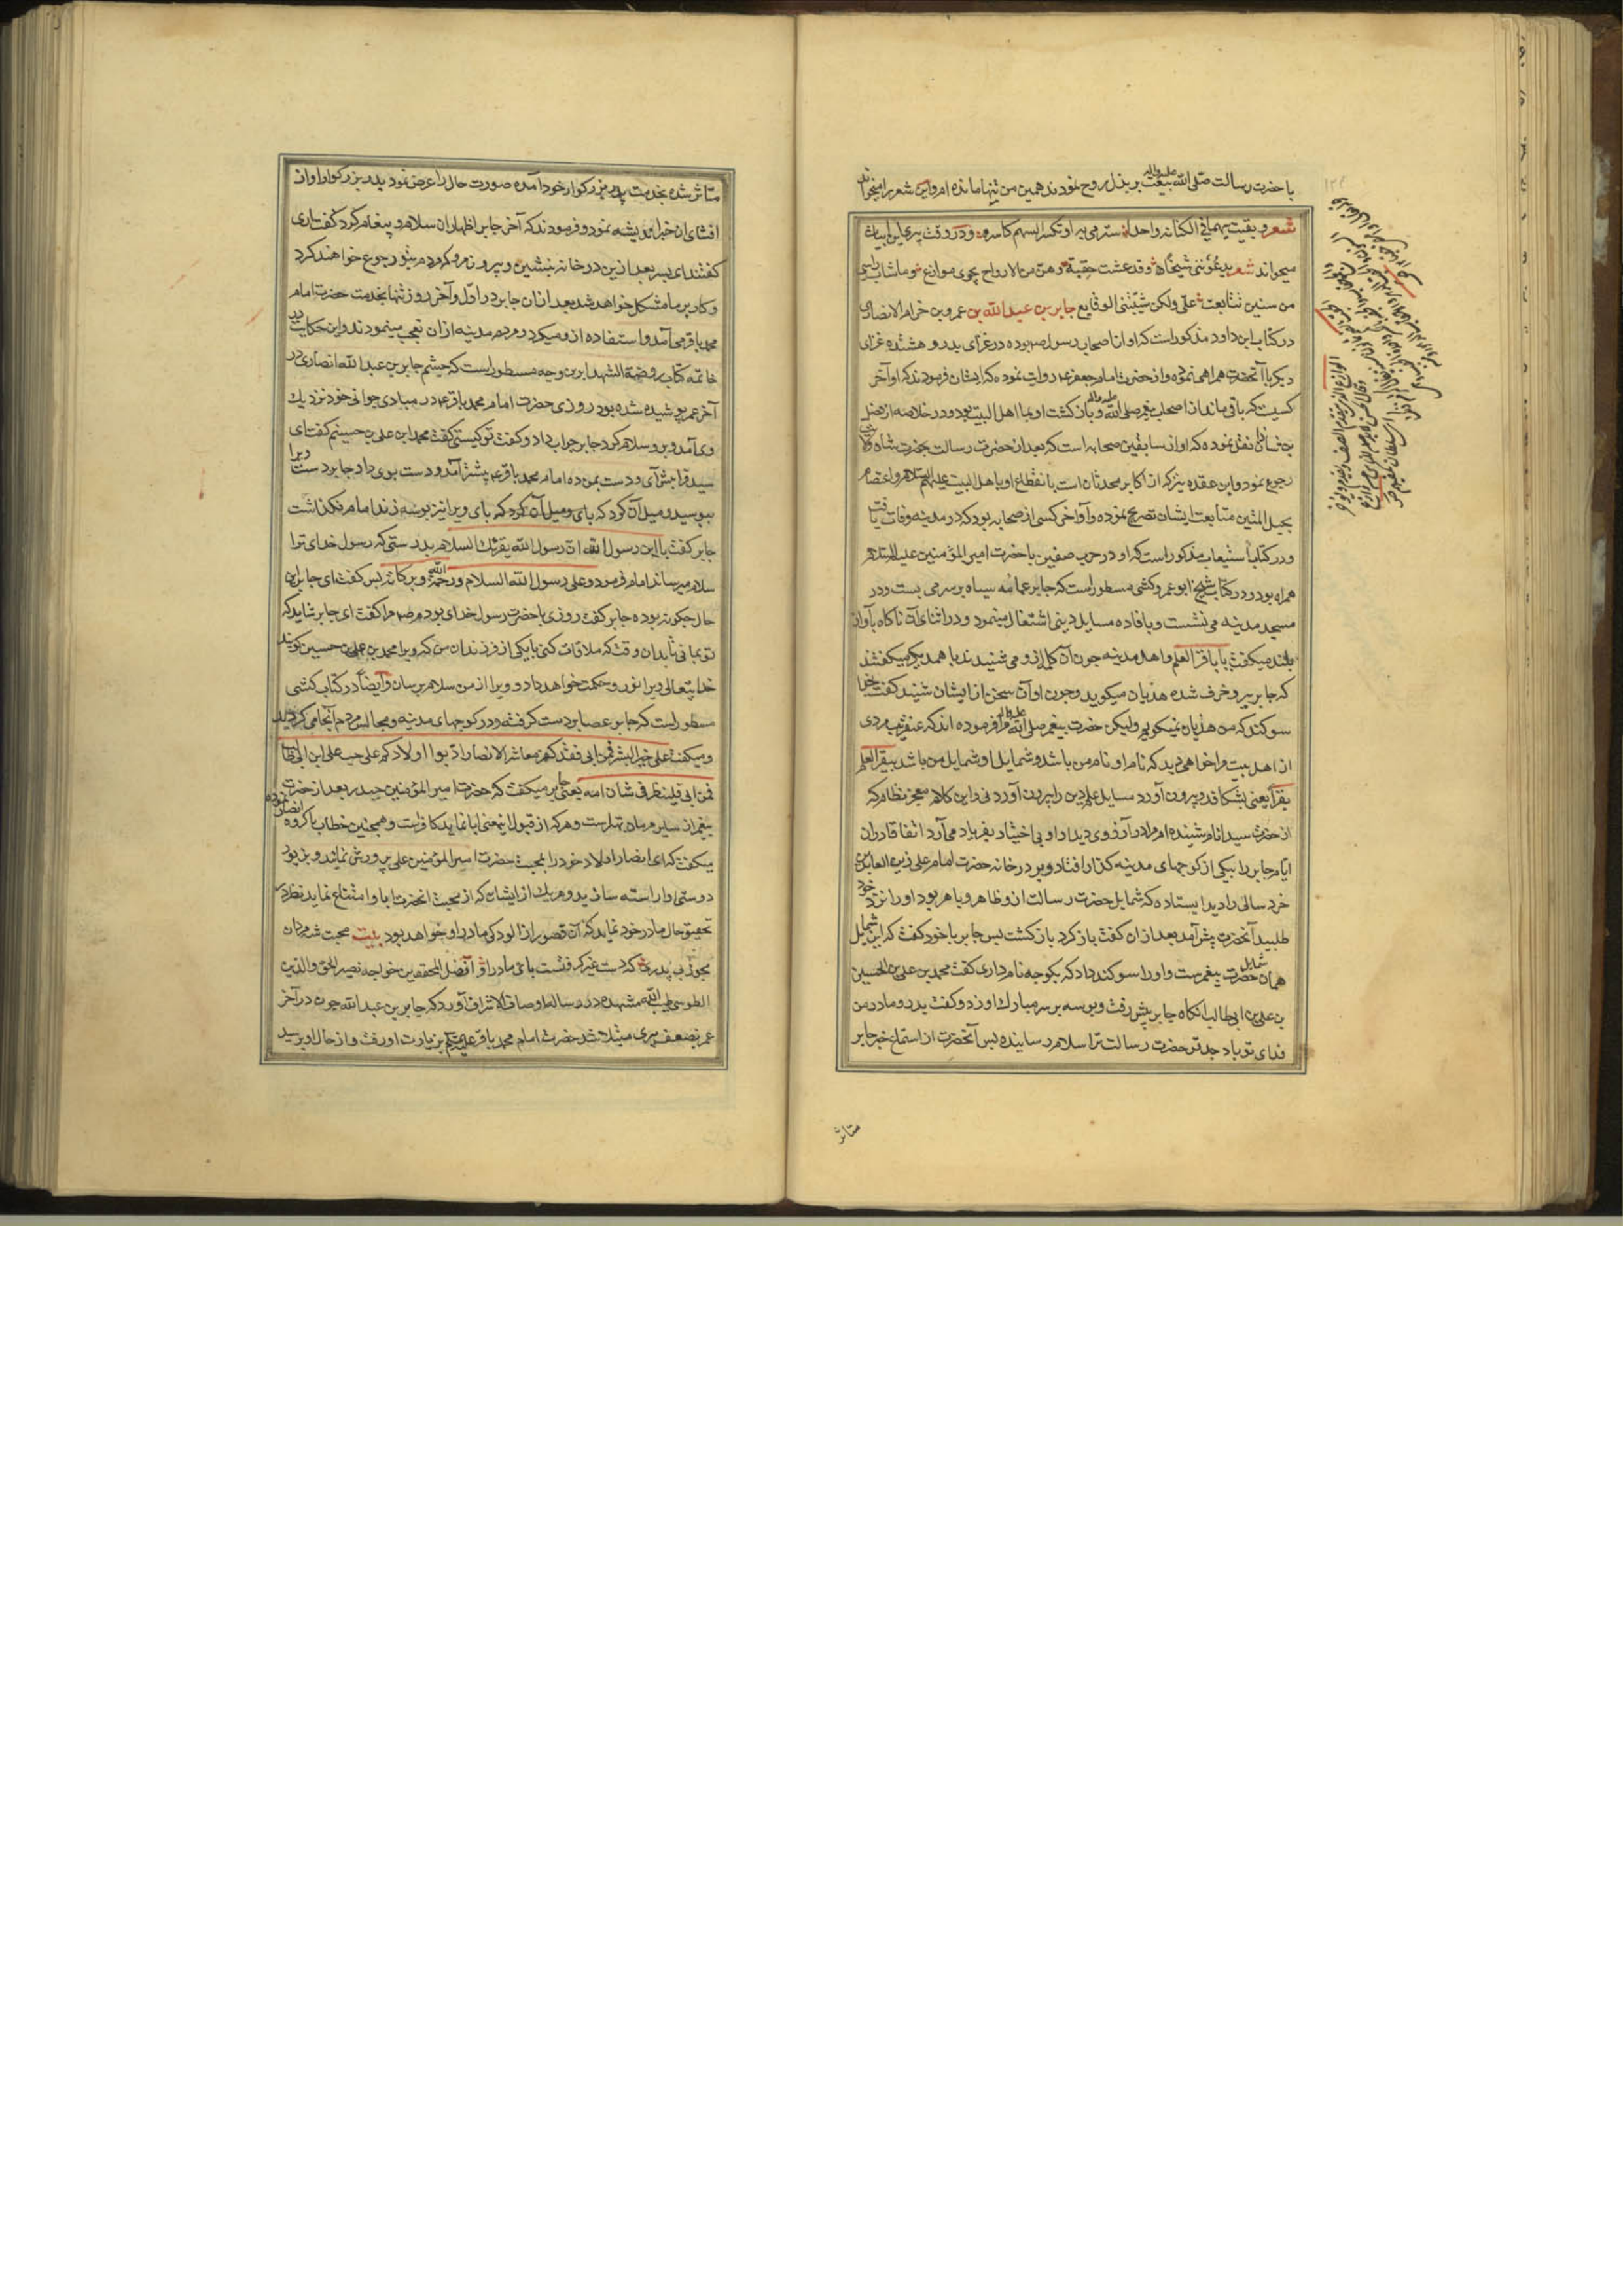 با حضرت رسالت صلی الله علیه واله بیعت بر بذل روح نمودند همین من تنها مانده ام و این شعر را میخواند
شعر و بقیت سهما فی الکنانة واحدا سترمی به او تکسر السهم کاسره و در وقت پیری این ابیات
میخواند شعر یدعوننی شیخا وقد عشت حقبة وهن من الازواج نحوی موازع وما شاب راسی
من سنین تتابعت علی ولکن شیبتنی الوقایع جابر بن عبدالله بن عمرو بن حرام الانصاری
در کتاب ابن داود مذکور است که او از اصحاب رسول ص بوده در غزای بدر و هشتده غزای
دیکر با آنحضرت همراهی نموده و از حضرت امام جعفر عم روایت نموده که ایشان فرمودند که او آخر
کسیست که باقی ماند از اصحاب پیغمبر صلی الله علیه واله و بازکشت او بما اهل البیت بود و در خلاصه از فضل
بن شاذان نقل نموده که او از سابقین صحابه است که بعد از حضرت رسالت بحضرت شاه ولایت
رجوع نمود و ابن عقده نیز که از اکابر محدثان است بانقطاع او باهل البیت علیهم السلام و اعتصام
بحبل المتین متابعت ایشان تصریح نموده و او آخر کسی از صحابه بود که در مدینه وفات یافت
و در کتاب استیعاب مذکور است که او در حرب صفین با حضرت امیر المؤمنین علیه السلام
همراه بود و در کتاب شیخ ابو عمرو کشی مسطور است که جابر عمامه سیاه بر سر می بست و در
مسجد مدینه می نشست و بافاده مسایل دینی اشتغال مینمود و در اثنای آن ناکاه بآواز
بلند میکفت یا باقر العلم و اهل مدینه چون آن کلام از و می شنیدند با همدیکر میکفتند
که جابر پیر و خرف شده هذیان میکوید و چون او آن سخن از ایشان شنید کفت بخدا
سوکند که من هذیان نمیکویم ولیکن حضرت پیغمبر صلی الله علیه واله مرا فرموده اند که عنقریب مردی
از اهل بیت مرا خواهی دید که نام او نام من باشد و شمایل او شمایل من باشد یبقر العلم
بقرا یعنی بشکافد و بیرون آورد مسایل علم دین را بیرون آوردنی و این کلام معجز نظام که
از حضرت سید انام شنیده ام مرا در آرزوی دیدار او بی اختیار بفریاد می آرد اتفاقا در ان
ایام جابر را بیکی از کوچهای مدینه کذار افتاد و بر در خانه حضرت امام علی زین العابدین
خرد سالی را دید ایستاده که شمایل حضرت رسالت از و ظاهر و باهر بود او را نزد خود
طلبید آنحضرت پیش آمد بعد ازان کفت باز کرد باز کشت پس جابر با خود کفت که این شمایل
همان شمایل حضرت پیغمبرست و او را سوکند داد که بکو چه نام داری کفت محمد بن علی بن الحسین
بن علی بن ابی طالب انکاه جابر پیش رفت و بوسه بر سر مبارک او زد و کفت پدر و مادر من
فدای تو باد جد تو حضرت رسالت ترا سلام رسانیده پس آنحضرت از استماع خبر جابر
متاثر
متاثر شده بخدمت پدر بزرکوار خود آمده صورت حال را عرض نمود پدر بزرکوار او از
افشای ان خبر اندیشه نمود و فرمودند که آخر جابر اظهار ان سلام و پیغام کرد کفت آری
کفتند ای پسر بعد ازین در خانه بنشین و بیرون مرو که مردم بتو رجوع خواهند کرد
و کار بر ما مشکل خواهد شد بعد ازان جابر در اول و آخر روز تنها بخدمت حضرت امام
محمد باقر می آمد و استفاده از و میکرد و مردم مدینه ازان تعجب مینمودند و این حکایت در
خاتمه کتاب روضة الشهدا برین وجه مسطور است که چشم جابر بن عبدالله انصاری در
آخر عمر پوشیده شده بود روزی حضرت امام محمد باقر عم در مبادی جوانی خود نزدیک
وی آمد و برو سلام کرد جابر جواب داد و کفت تو کیستی کفت محمد ابن علی بن حسینم کفت ای
سید من پیش آی و دست بمن ده امام محمد باقر عم پیشتر آمد و دست بوی داد جابر دست ویرا
ببوسید و میل آن کرد که پای ویرا نیز بوسه زند امام نکذاشت
جابر کفت یا ابن رسول الله ان رسول الله یقرئک السلام بدرستی که رسول خدای ترا
سلام میرساند امام فرمود و علی رسول الله السلام ورحمة الله وبرکاته پس کفت ای جابر این
حال چکونه بوده جابر کفت روزی با حضرت رسول خدای بودم ص مرا کفت ای جابر شاید که
تو بمانی تا بدان وقت که ملاقات کنی با یکی از فرزندان من که ویرا محمد بن علی بن حسین کویند
خدایتعالی ویرا نور و حکمت خواهد داد و ویرا از من سلام برسان و ایضا در کتاب کشی
مسطور است که جابر عصا بر دست کرفته و در کوچهای مدینه و مجالس مردم آنجا می کردید
و میکفت علی خیر البشر فمن ابی فقد کفر معاشر الانصار ادبوا اولادکم علی حب علی ابن ابی طالب
فمن ابی فلینظر فی شان امه یعنی جابر میکفت که حضرت امیر المؤمنین حیدر بعد از حضرت
پیغمبر از سایر مردمان بهترست و هر که از قبول اینمعنی ابا نماید کافرست و همچنین خطاب با کروه انصار نموده
میکفت که ای انصار اولاد خود را بمحبت حضرت امیر المؤمنین علی پرورش نمائید و بزیور
دوستی او آراسته سازید و هر یک از ایشان که از محبت انحضرت ابا و امتناع نماید نظر در
تحقیق حال مادر خود نماید که آن قصور از الودکی مادر او خواهد بود بیت محبت شه مردان
مجو ز بی پدری که دست غیر کرفتست پای مادر او افضل المحققین خواجه نصیر الحق والدین
الطوسی طیب الله مشهده در رساله اوصاف الاشراف آورد که جابر بن عبدالله چون در آخر
عمر بضعف پیری مبتلا شد حضرت امام محمد باقر علیه السلام بزیارت او رفت و از حال او پرسید